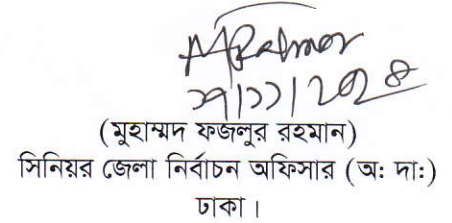 MRahman
(মুহাম্মদ ফজলুর রহমান)
সিনিয়র জেলা নির্বাচন অফিসার (অ: দা:)
ঢাকা।